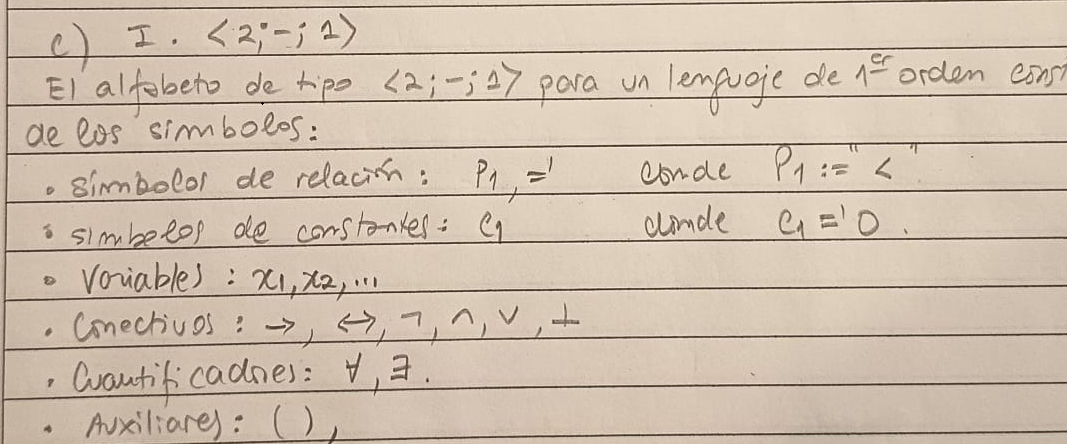 c) I. <2;-;1>
El alfabeto de tipo <2;-;1> para un lenguaje de 1er orden const
de los simbolos:
• símbolos de relación: P1, =' donde P1 := "<"
• simbolos de constantes: C1 donde C1 =' 0.
• Variables: x1, x2, ...
• Conectivos: →, ↔, ¬, ∧, ∨, ⊥
• Cuantificadores: ∀, ∃.
• Auxiliares: ( ),